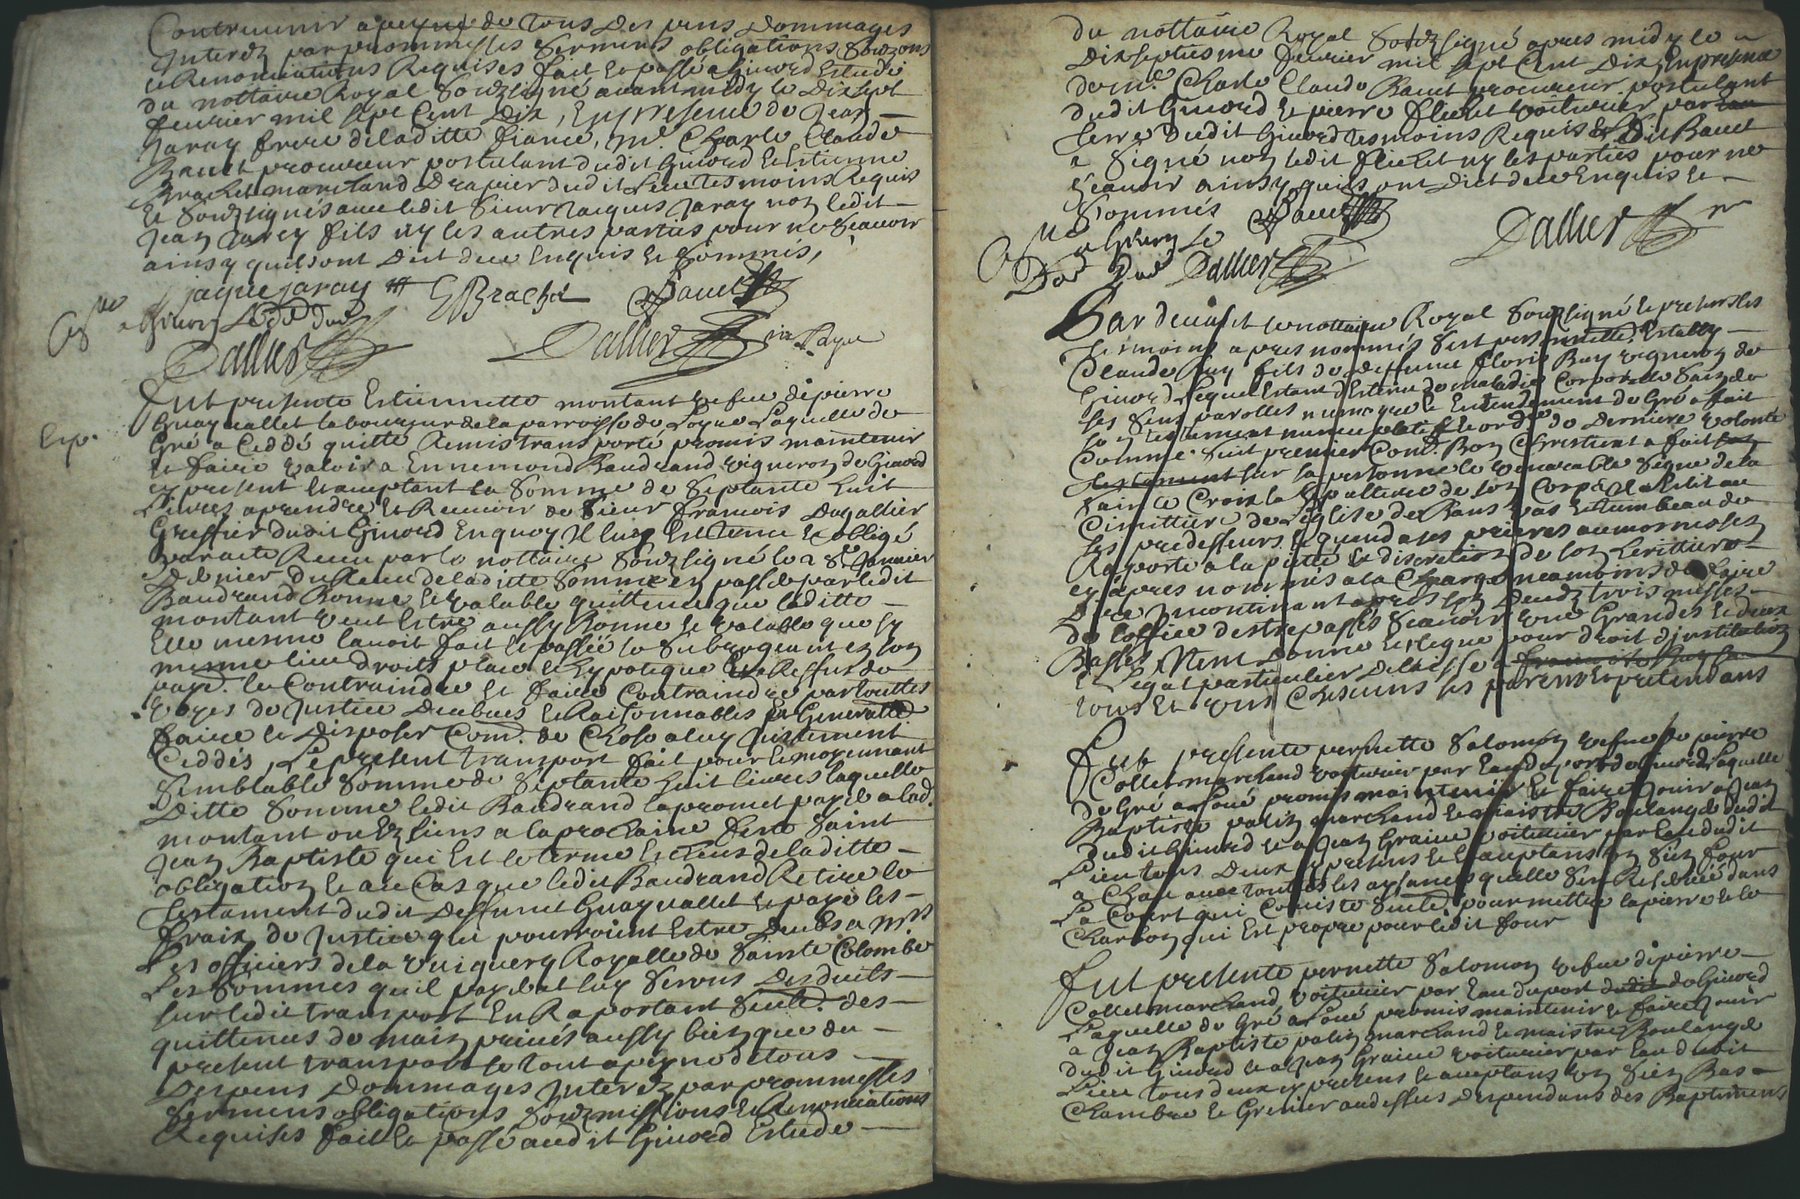 Contrevenir a peyne de tous Des pens Dommages
Interez par promesses Sermens obligations Soumons
et Renonciations Requises fait et passé a Givord Estude
du nottaire Royal Souzsigné avant midy le Dix Sept
feuvrier mil sept Cent Dix, En presence de Jean
Jaray frere de laditte fiance, Me Charle Claude
Bauet procureur postulant dudit Givord et Estienne
Brachet marchand Drapier dudit Lieu tesmoins Requis
et Souzsignés avec ledit Sieur Jacques Jaray non ledit
Jean Jarey fils ny les autres parties pour ne Scavoir
ainsy quils ont Dict de ce Enquis et Sommés,
jaque jaray E Brachet Bauet
Con.lle a Givors Le
Dallier Dallier
Exp.
Fut presente Estiennette montant vefve de pierre
Guayuallet laboureur de la parroisse de Loyre Laquelle de
Gré a Ceddé quitté Remis transporté promis maintenir
et faire valoir a Ennemond Baudrand vigneron de Givord
cy present et acceptant la Somme de Septante huit
Livres a prendre et Recevoir de Sieur francois Dugallier
Greffier dudit Givord En quoy Il luy Est tenu et obligé
par acte Receu par le nottaire Souzsigné le 2 Janvier
Dernier du Receu de laditte Somme en passer par ledit
Baudrand Bonne et valable quittence que laditte
montant veut Estre aussy Bonne et valable que sy
Elle mesme lavoit fait et passée le Subrogeant en son
mesme lieu droits place et hypoteque Et a Reffus de
paye. le Contraindre et faire Contraindre par touttes
voyes de Justice Deubues et Raisonnables Et Generallt
faire et Disposer Com. de Chose a luy Justement
Ceddés, Le present transport fait pour et moyennant
Semblable Somme de Septante huit livres laquelle
Ditte Somme ledit Baudrand la promet payer a lad.
montant ou Ez siens a la prochaine feste Saint
Jean Baptiste qui Est le terme Escheus de laditte
obligation et au Cas que ledit Baudrand Retire le
testament dudit Deffunct Guayuallet et paye les
fraix de Justice qui pourroient Estre Deubs a Mrs
Les officiers de la viguery Royalle de Sainte Colombe
Les Sommes quil payera luy Seront Desduits
sur ledit transport En Raportant Seult. des
quittences de main privés aussy bien que du
present transport le tout a peyne de tous
Despens Dommages Interez par promesses
Sermens obligations Souzmissions et Renonciations
Requises fait et passé audit Givord Estude
du nottaire Royal Souzsigné apres midy le
Dixseptiesme feuvrier mil sept Cent Dix, En presence
de Me. Charle Claude Bauet procureur postulant
dudit Givord et pierre flechet voiturier par
terre dudit Givord tesmoins Requis Ledit Bauet
a Signé non ledit flechet ny les parties pour ne
Scavoir ainsy quils ont Dict de ce Enquis et
Sommés Bauet
a Givors Le
Dallier Dallier
Par devant le nottaire Royal Souzsigné et presens les
tesmoins apres nommés Sest personnellemt. Estably
Claude Buy fils de deffunct floris Buy vigneron de
Givord Lequel Estant Destenu de maladie Corporelle Sain de
Ses Sens parolles memoyre et Entendement de Gré a fait
Son testament nuncupatif et ordre de Derniere volonté
Comme Suit premier Com. Bon Chrestient a fait
sur sa personne le venerable Signe de la
Sainte Croix la Sepulture de Son Corps Eslit au
Cimittiere de L'eglise de Bans au tumbeau de
Ses predesseurs Et quand a ses prieres aumornes Sen
Raporte a la pieté et discretion de Son heritiere
cy apres nommés a la Charge neamoins de faire
Dire Incontinent apres son Decedz trois messes
De l'office des trepassés Scavoir une Grande et deux
Basses Item Donne et legue pour droit d'institution
Et Legat particulier Delaisse a
tous Et uns Chescuns ses parens pretendans
Fut presente pernette Salomon vefve de pierre
Collet marchand voiturier par Eau du port de Givord Laquelle
de Gré a Loué promis maintenir et faire Jouir a Jean
Baptiste patin marchand et maistre Boulanger dudit
dudit Givord et a Jean Graive voiturier par Eau dudit
Lieu tous Deux cy presens et acceptans un Sien four
a Chau avec touttes les aysances quelle Sen Reservée dans
La Court qui Consiste Seult. pour mettre la pierre et le
Charbon qui Est propre pour ledit four
Fut presente pernette Salomon vefve de pierre
Collet marchand voiturier par Eau du port dudit de Givord
Laquelle de Gré a Loué promis maintenir et faire Jouir
a Jean Baptiste patin marchand et maistre Boulanger
dudit Givord et a Jean Graive voiturier par Eau dudit
Lieu tous deux cy presens et acceptans un Sien Bas
Chambre et Grenier au dessus Despendans des Baptimens